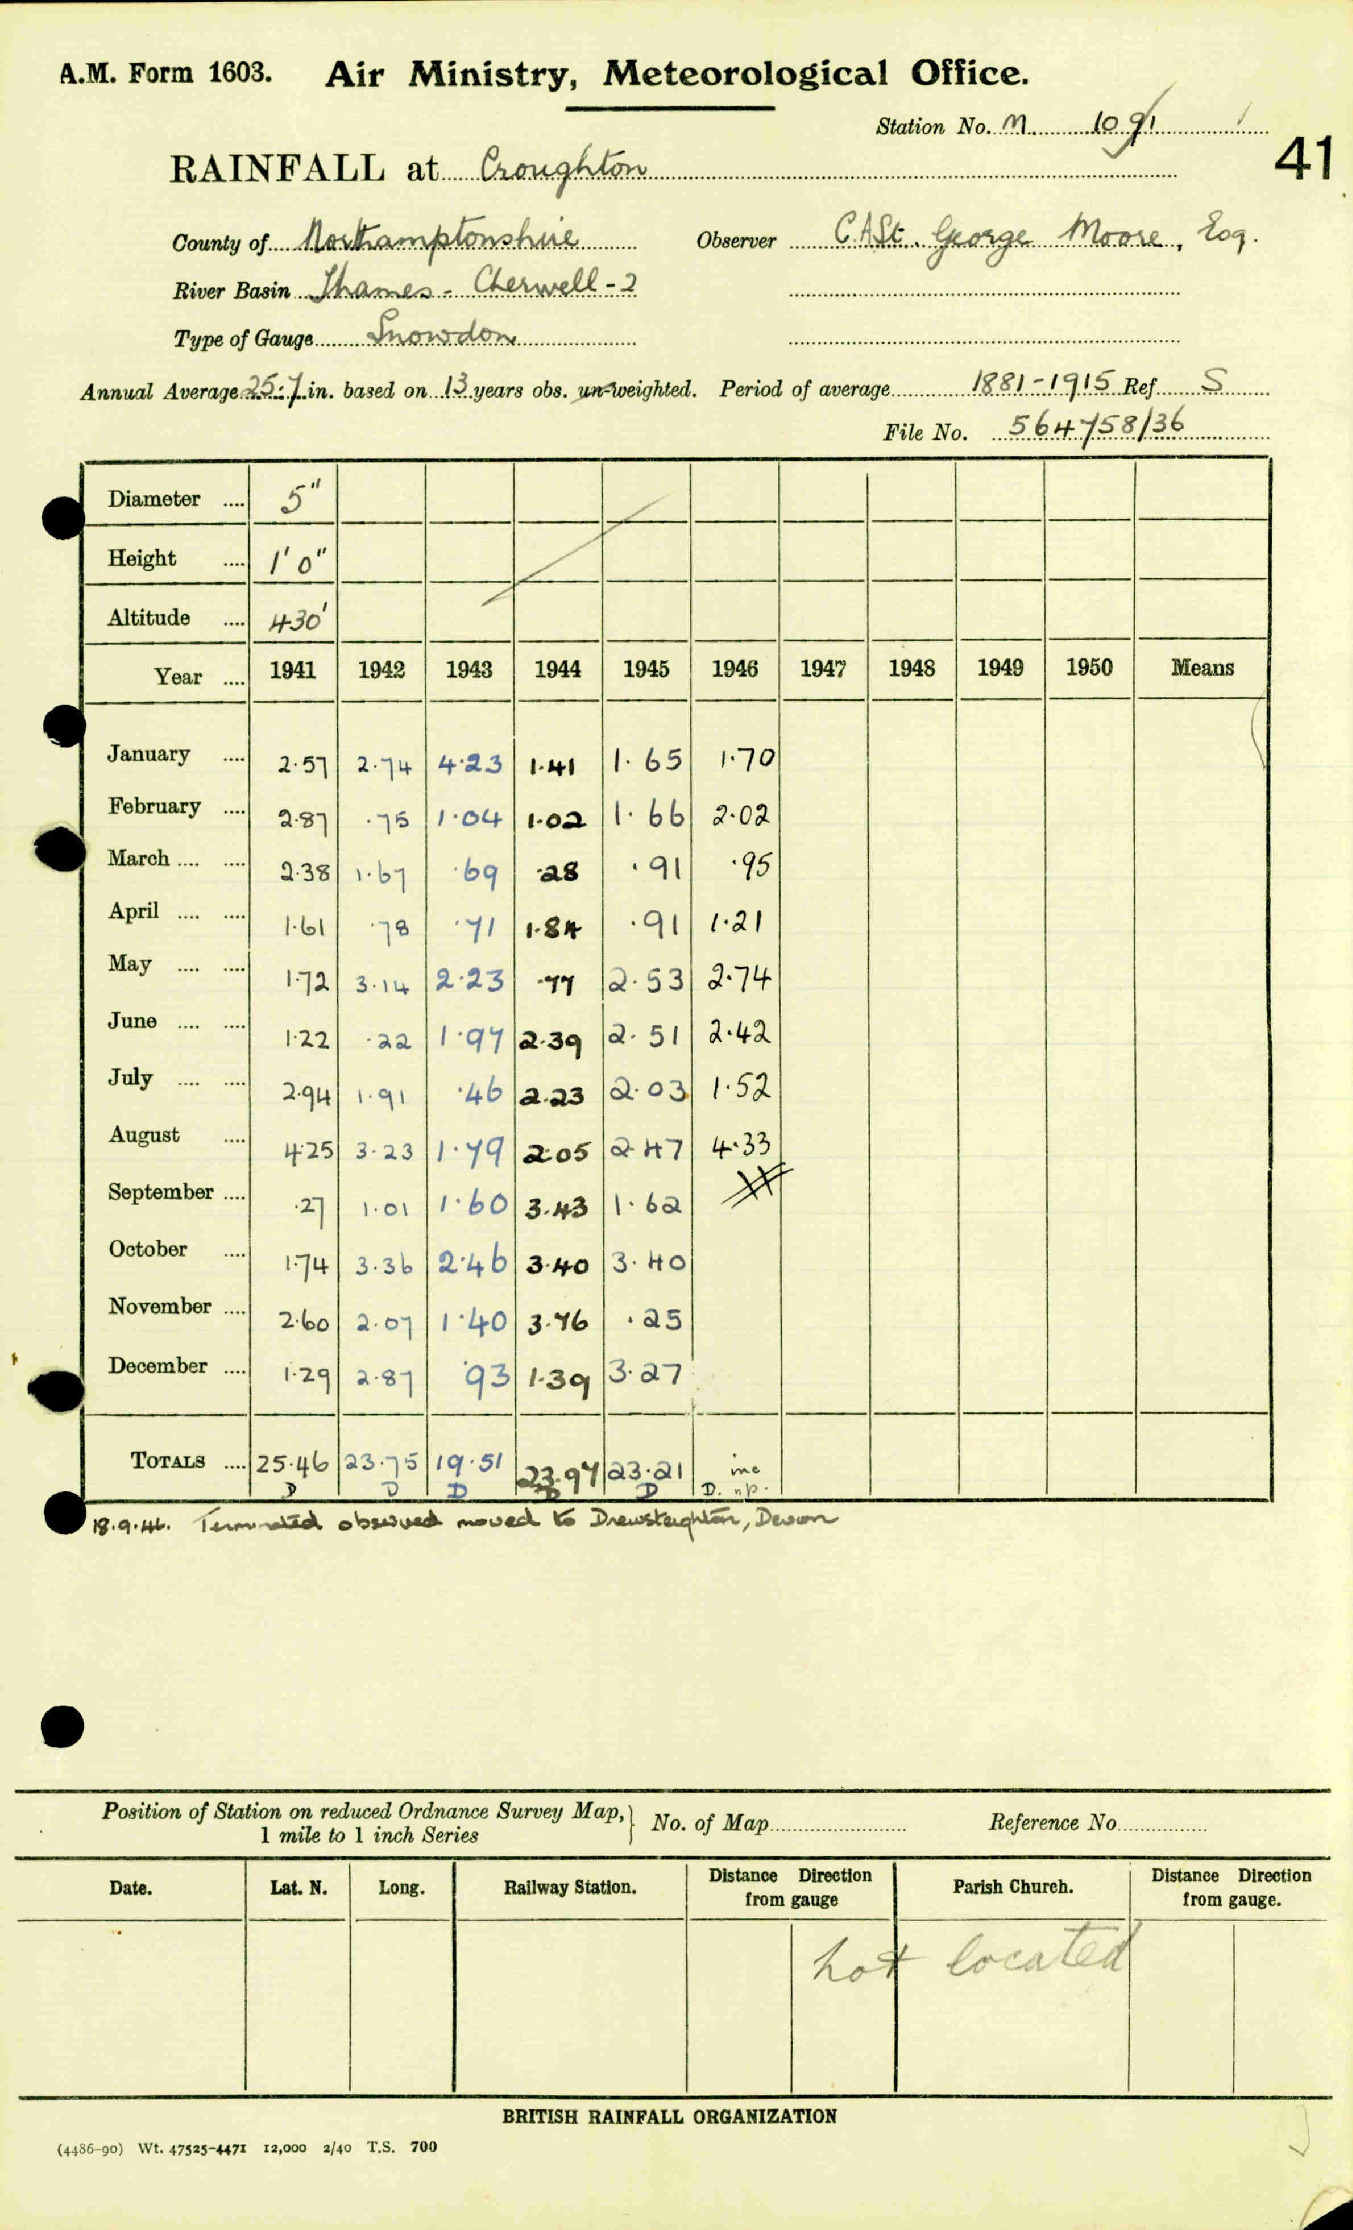 A.M. Form 1603. Air Ministry, Meteorological Office.
Station No. M. 1091
41
RAINFALL at Croughton
County of Northamptonshire Observer C.A.St. George Moore, Esq.
River Basin Thames - Cherwell - 2
Type of Gauge Snowdon
Annual Average 25.7 in. based on 13 years obs. un-weighted. Period of average 1881-1915 Ref S
File No. 564758/36
Diameter .... 5"
Height .... 1' 0"
Altitude .... 430'
Year .... 1941 1942 1943 1944 1945 1946 1947 1948 1949 1950 Means
January .... 2.57 2.74 4.23 1.41 1.65 1.70
February .... 2.87 .75 1.04 1.02 1.66 2.02
March .... .... 2.38 1.67 .69 .28 .91 .95
April .... .... 1.61 .78 .71 1.84 .91 1.21
May .... .... 1.72 3.14 2.23 .77 2.53 2.74
June .... .... 1.22 .22 1.97 2.39 2.51 2.42
July .... .... 2.94 1.91 .46 2.23 2.03 1.52
August .... 4.25 3.23 1.79 2.05 2.47 4.33
September .... .27 1.01 1.60 3.43 1.62
October .... 1.74 3.36 2.46 3.40 3.40
November .... 2.60 2.07 1.40 3.76 .25
December .... 1.29 2.87 .93 1.39 3.27
TOTALS .... 25.46 23.75 19.51 23.97 23.21 inc
D D D D D D. n.p.
18.9.46. Terminated observer moved to Drewsteignton, Devon
Position of Station on reduced Ordnance Survey Map, 1 mile to 1 inch Series } No. of Map Reference No
Date. Lat. N. Long. Railway Station. Distance Direction from gauge Parish Church. Distance Direction from gauge.
not located
BRITISH RAINFALL ORGANIZATION
(4486-90) Wt. 47525-4471 12,000 2/40 T.S. 700